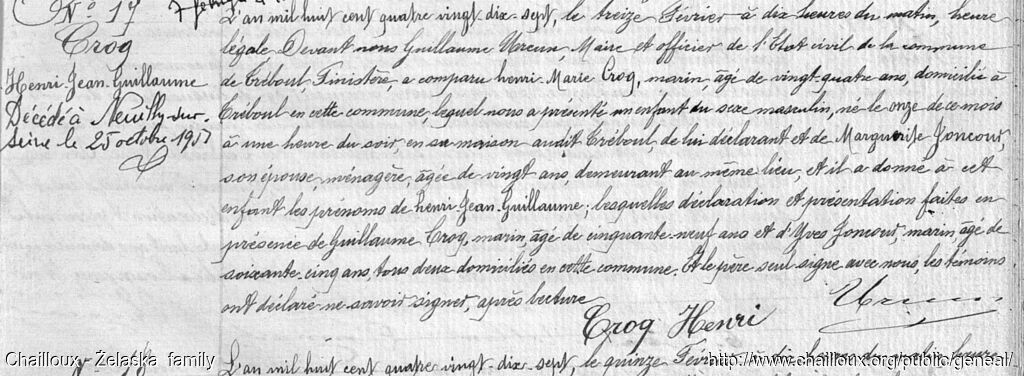 N° 17
Croq
Henri-Jean-Guillaume
Décédé à Neuilly-sur-
Seine le 25 octobre 1957
L'an mil huit cent quatre vingt-dix-sept, le treize Février à dix heures du matin, heure
légale Devant nous Guillaume Maire et officier de l'Etat civil de la commune
de Tréboul, Finistère, a comparu henri-Marie Croq, marin, âgé de vingt-quatre ans, domicilié à
Tréboul en cette commune, lequel nous a présenté un enfant du sexe masculin, né le onze de ce mois
à une heure du soir, en sa maison audit Tréboul, de lui déclarant et de Marguerite Joncour,
son épouse, ménagère, âgée de vingt ans, demeurant au même lieu, et il a donné à cet
enfant les prénoms de henri-Jean-Guillaume; lesquelles déclaration et présentation faites en
présence de Guillaume Croq, marin, âgé de cinquante-neuf ans et d'Yves Joncour, marin, âgé de
soixante-cinq ans, tous deux domiciliés en cette commune. Et le père seul signe avec nous, les témoins
ont déclaré ne savoir signer, après lecture
Croq Henri
L'an mil huit cent quatre vingt-dix-sept, le quinze Février à dix heures du matin, heure
Chailloux - Želaska family
http://www.chailloux.org/public/geneal/